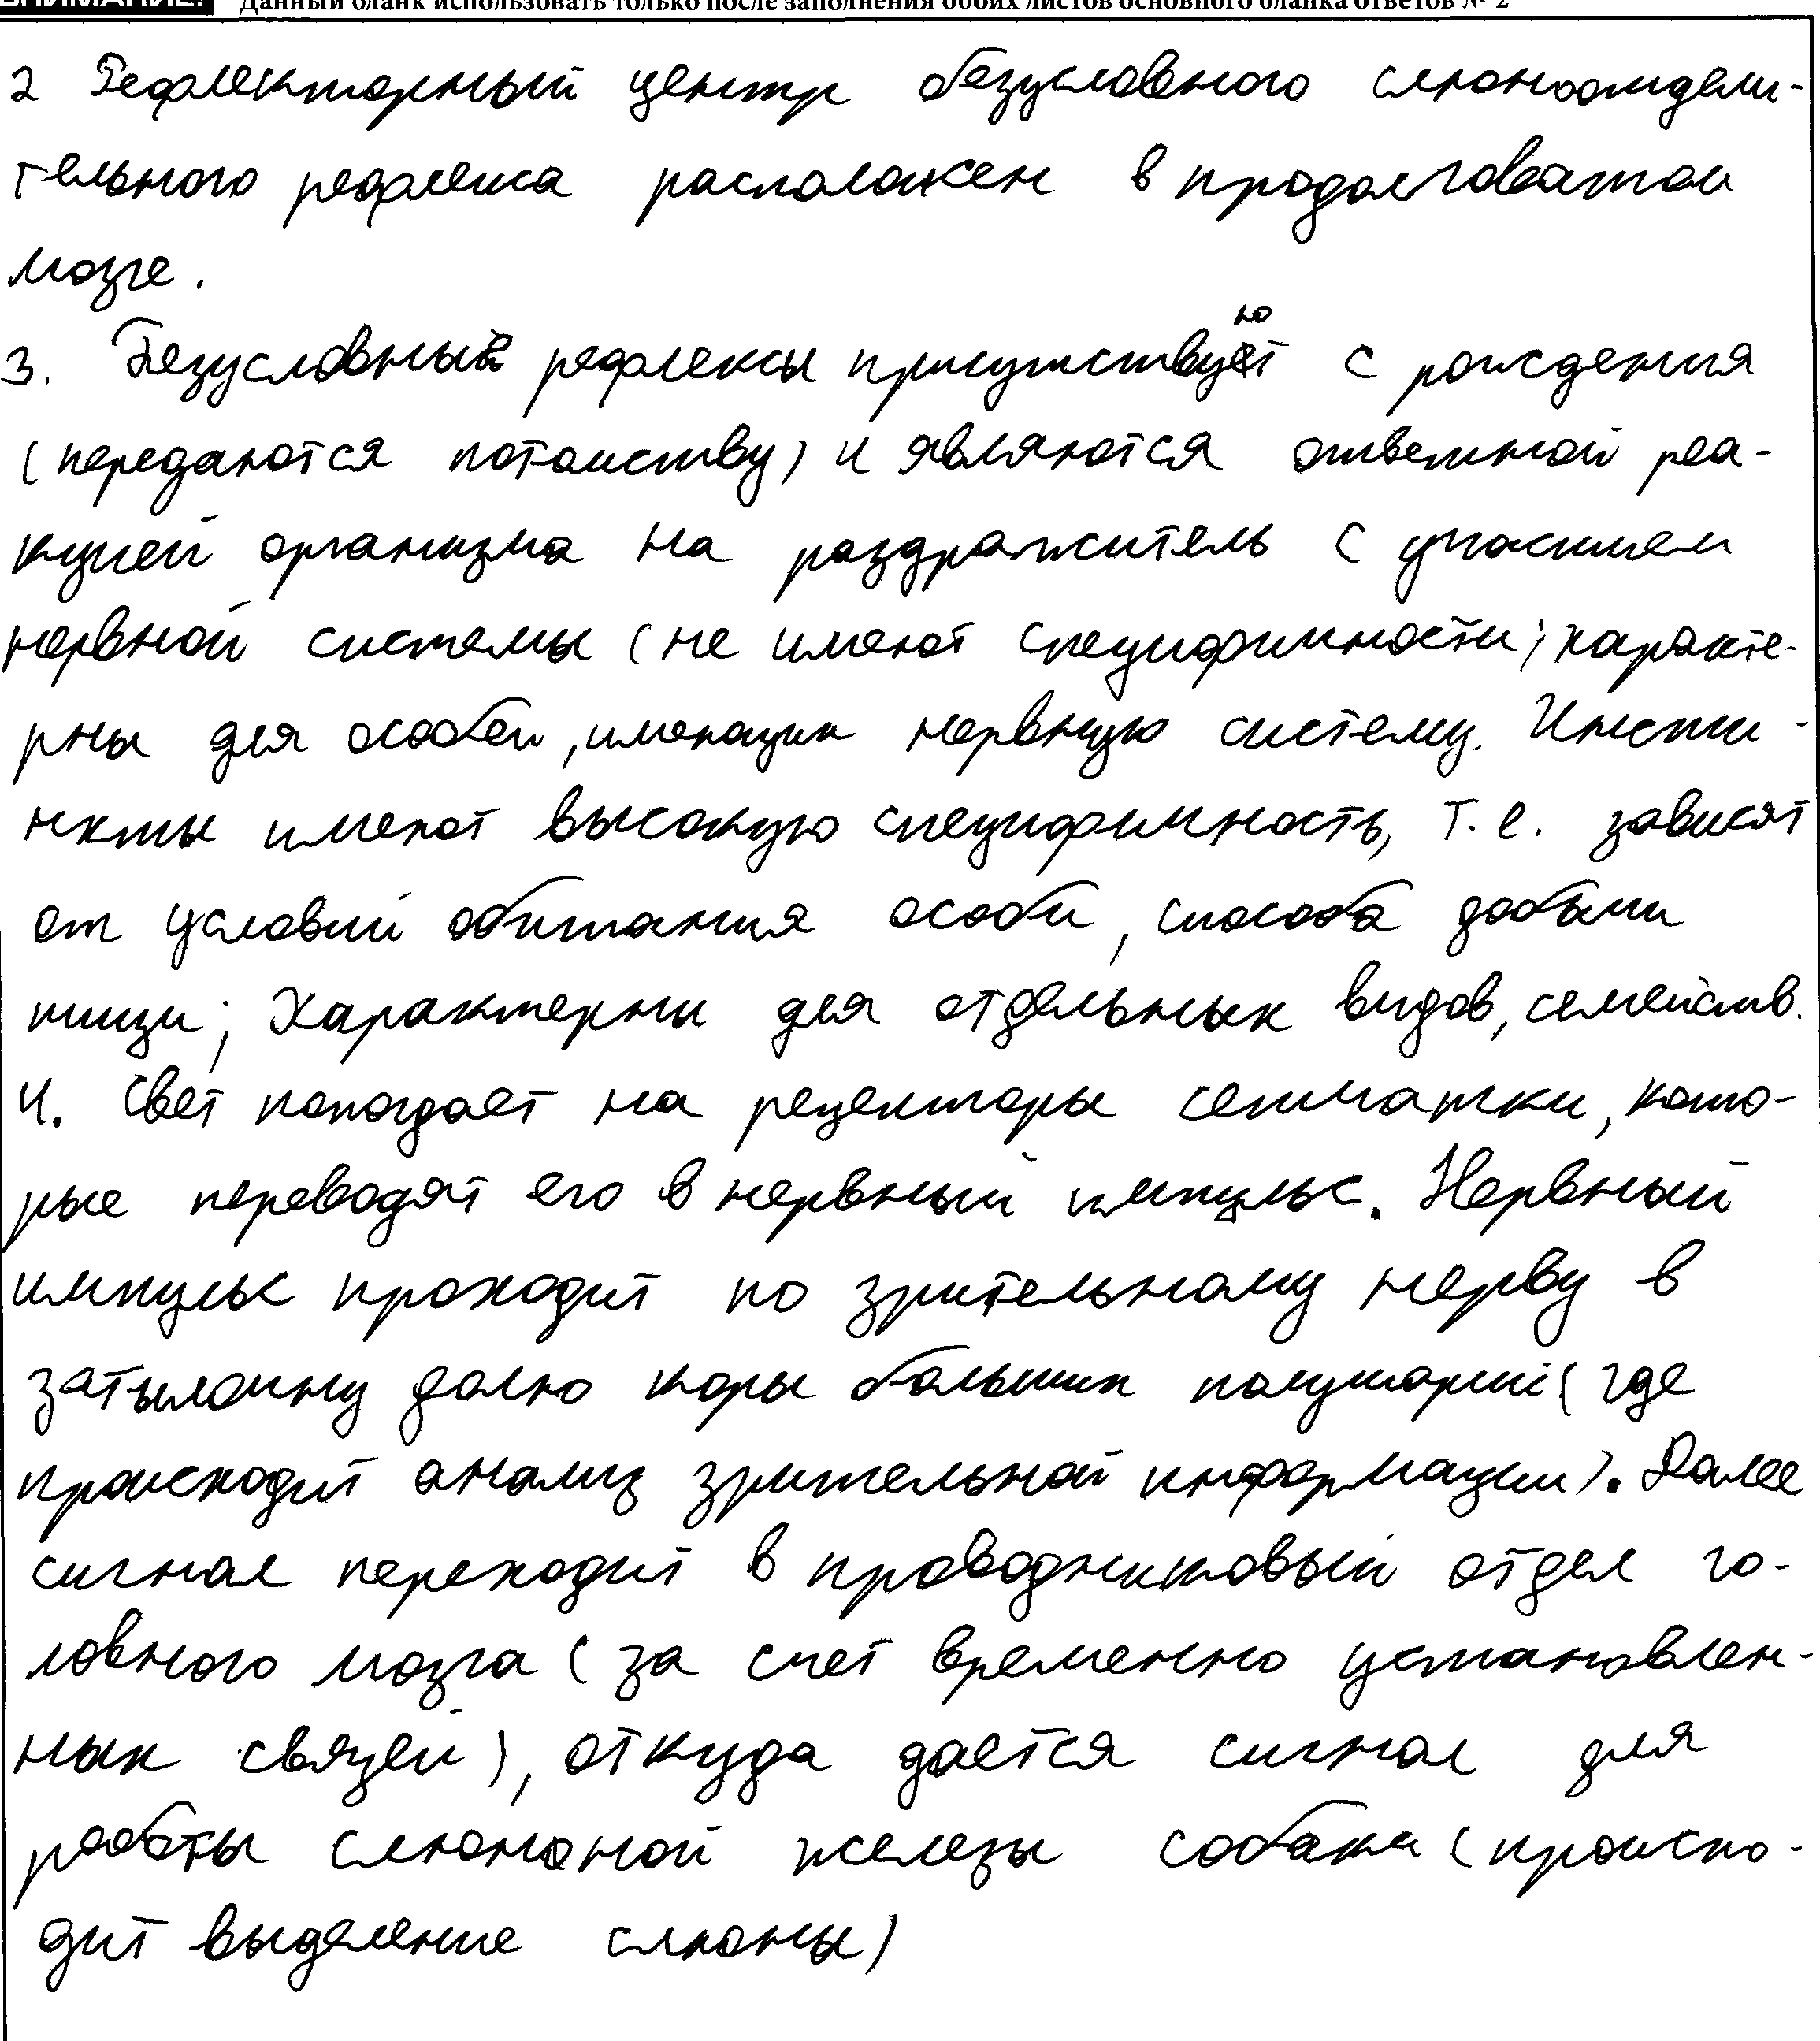 ВНИМАНИЕ! Данный бланк использовать только после заполнения обоих листов основного бланка ответов № 2
2 Рефлекторный центр безусловного слюноотдели-
тельного рефлекса расположен в продолговатом
мозге.
3. Безусловные рефлексы присутствуют с рождения
(передаются потомству) и являются ответной реа-
кцией организма на раздражитель с участием
нервной системы (не имеют специфичности; характе-
рны для особей, имеющих нервную систему. Инсти-
нкты имеют высокую специфичность, т.е. зависят
от условий обитания особи, способа добычи
пищи; Характерны для отдельных видов, семейств.
4. Свет попадает на рецепторы сетчатки, кото-
рые переводят его в нервный импульс. Нервный
импульс проходит по зрительному нерву в
затылочну долю коры больших полушарий (где
происходит анализ зрительной информации). Далее
сигнал переходит в проводниковый отдел го-
ловного мозга (за счет временно установлен-
ных связей), откуда даётся сигнал для
работы слюнонной железы собаки (происхо-
дит выделение слюны)